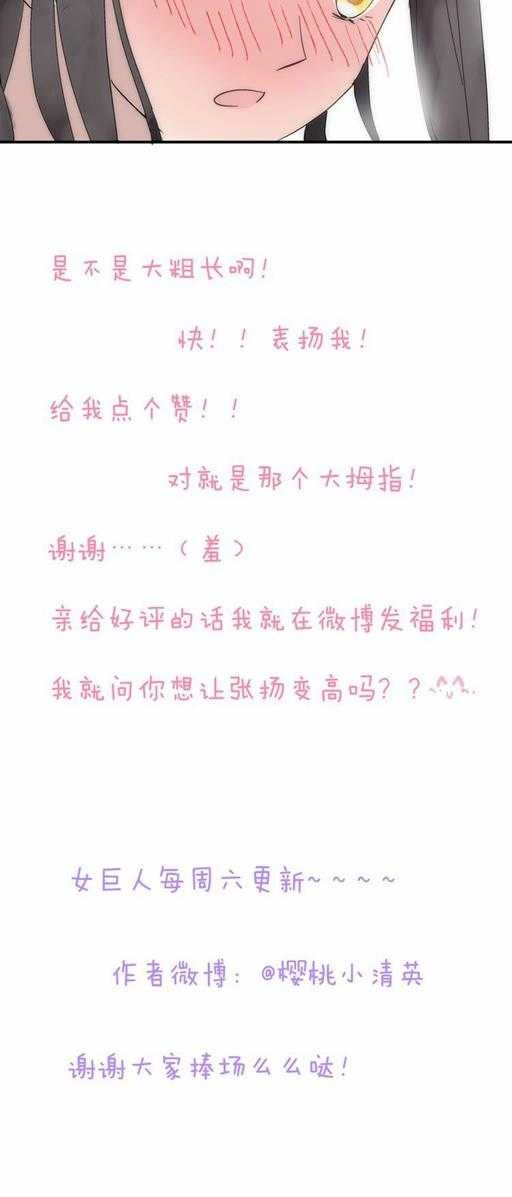 是不是大粗长啊!
快!! 表扬我!
给我点个赞!!
对就是那个大拇指!
谢谢……(羞)
亲给好评的话我就在微博发福利!
我就问你想让张扬变高吗??
女巨人每周六更新~~~~
作者微博: @樱桃小清英
谢谢大家捧场么么哒!